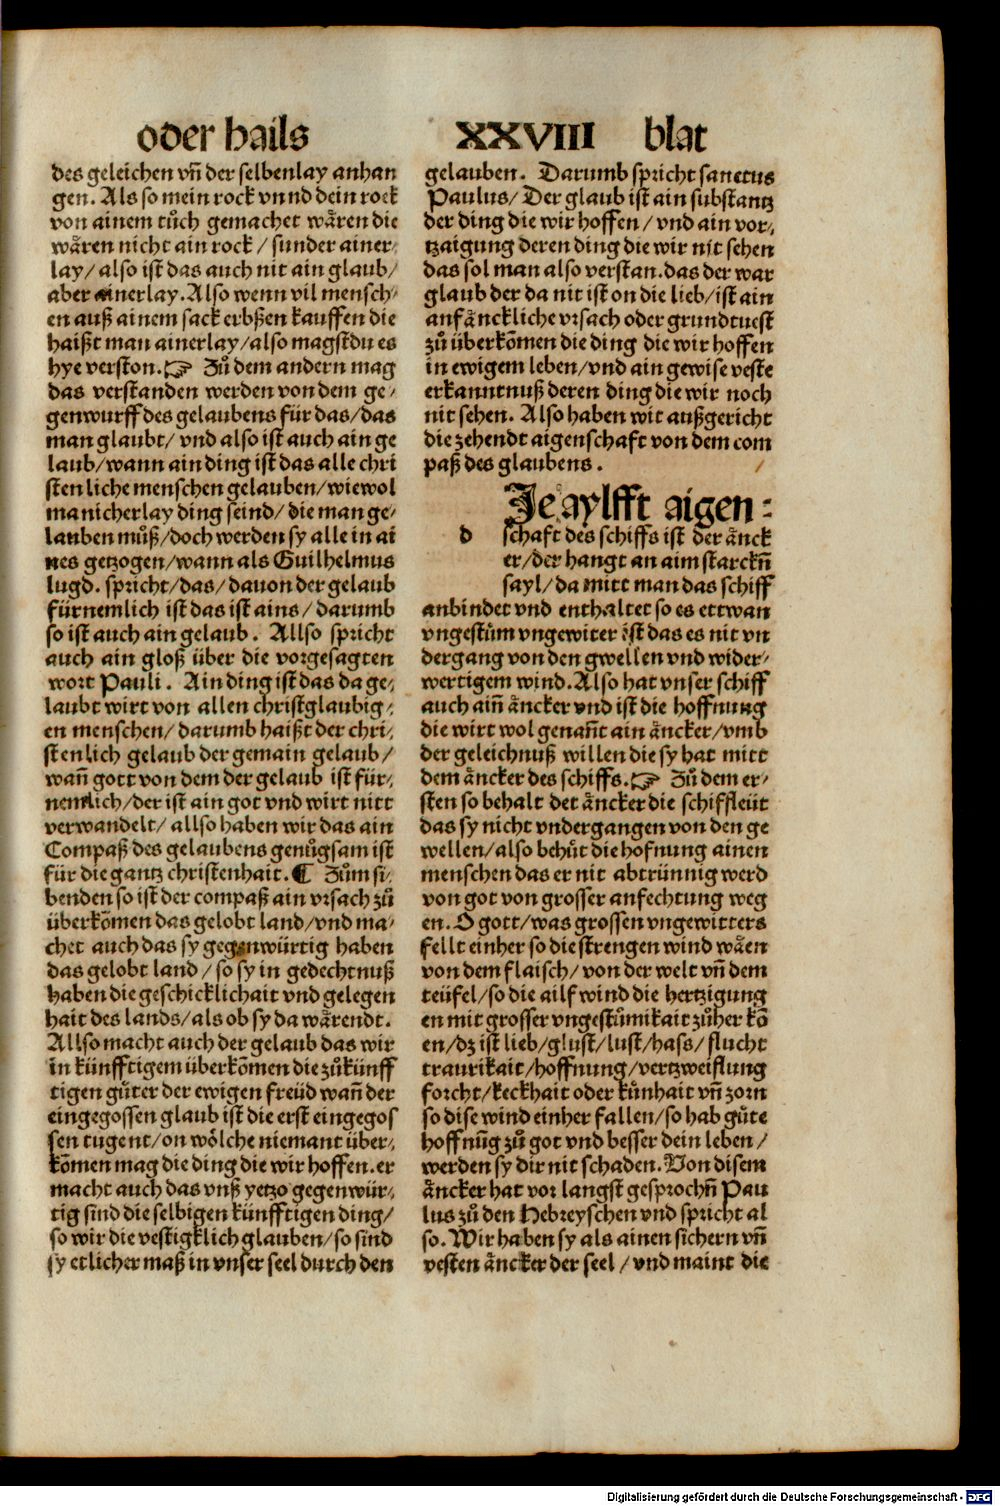 oder hails XXVIII blat
des geleichen vn̄ der selbenlay anhan
gen. Als so mein rock vnnd dein rock
von ainem tůch gemachet wären die
wären nicht ain rock / sunder ainer⸗
lay / also ist das auch nit ain glaub /
aber ainerlay. Also wenn vil mensch⸗
en auß ainem sack erbßen kauffen die
haißt man ainerlay / also magstdu es
hye verston. ☞ Zů dem andern mag
das verstanden werden von dem ge⸗
genwurff des gelaubens für das / das
man glaubt / vnd also ist auch ain ge
laub / wann ain ding ist das alle chri
stenliche menschen gelauben / wiewol
manicherlay ding seind / die man ge⸗
lauben můß / doch werden sy alle in ai
nes getzogen / wann als Guilhelmus
lugd. spricht / das / dauon der gelaub
fürnemlich ist das ist ains / darumb
so ist auch ain gelaub. Allso spricht
auch ain gloß über die vorgesagten
wort Pauli. Ain ding ist das da ge⸗
laubt wirt von allen christglaubig⸗
en menschen / darumb haißt der chri⸗
stenlich gelaub der gemain gelaub /
wan̄ gott von dem der gelaub ist für⸗
nemlich / der ist ain got vnd wirt nitt
verwandelt / allso haben wir das ain
Compaß des gelaubens genůgsam ist
für die gantz christenhait. ¶ Zům si⸗
benden so ist der compaß ain vrsach zů
überkōmen das gelobt land / vnd ma⸗
chet auch das sy gegenwürtig haben
das gelobt land / so sy in gedechtnuß
haben die geschicklichait vnd gelegen
hait des lands / als ob sy da wärendt.
Allso macht auch der gelaub das wir
in künfftigem überkōmen die zůkünff
tigen gůter der ewigen freüd wan̄ der
eingegossen glaub ist die erst eingegos
sen tugent / on wölche niemant über⸗
kōmen mag die ding die wir hoffen. er
macht auch das vnß yetzo gegenwür⸗
tig sind die selbigen künfftigen ding /
so wir die vestigklich glauben / so sind
sy etlicher maß in vnser seel durch den
gelauben. Darumb spricht sanctus
Paulus / Der glaub ist ain substantz
der ding die wir hoffen / vnd ain vor⸗
tzaigung deren ding die wir nit sehen
das sol man also verstan. das der war
glaub der da nit ist on die lieb / ist ain
anfänckliche vrsach oder grundtuest
zů überkōmen die ding die wir hoffen
in ewigem leben / vnd ain gewise veste
erkanntnuß deren ding die wir noch
nit sehen. Also haben wir außgericht
die zehendt aigenschaft von dem com
paß des glaubens.
d Je aylfft aigen⸗
schaft des schiffs ist der änck
er / der hangt an aim starckn̄
sayl / da mitt man das schiff
anbindet vnd enthaltet so es ettwan
vngestům vngewiter ist das es nit vn
dergang von den gwellen vnd wider⸗
wertigem wind. Also hat vnser schiff
auch ain̄ äncker vnd ist die hoffnung
die wirt wol genan̄t ain äncker / vmb
der geleichnuß willen die sy hat mitt
dem äncker des schiffs. ☞ Zů dem er⸗
sten so behalt det äncker die schiffleüt
das sy nicht vndergangen von den ge
wellen / also behůt die hofnung ainen
menschen das er nit abtrünnig werd
von got von grosser anfechtung weg
en. O gott / was grossen vngewitters
fellt einher so die strengen wind wäen
von dem flaisch / von der welt vn̄ dem
teüfel / so die ailf wind die hertzigung
en mit grosser vngestůmikait zůher kō
en / dz ist lieb / glust / lust / hass / flucht
traurikait / hoffnung / vertzweiflung
forcht / keckhait oder kůnhait vn̄ zorn
so dise wind einher fallen / so hab gůte
hoffnūg zů got vnd besser dein leben /
werden sy dir nit schaden. Von disem
äncker hat vor langst gesprochn̄ Pau
lus zů den Hebreyschen vnd spricht al
so. Wir haben sy als ainen sichern vn̄
vesten äncker der seel / vnd maint die
Digitalisierung gefördert durch die Deutsche Forschungsgemeinschaft - DFG